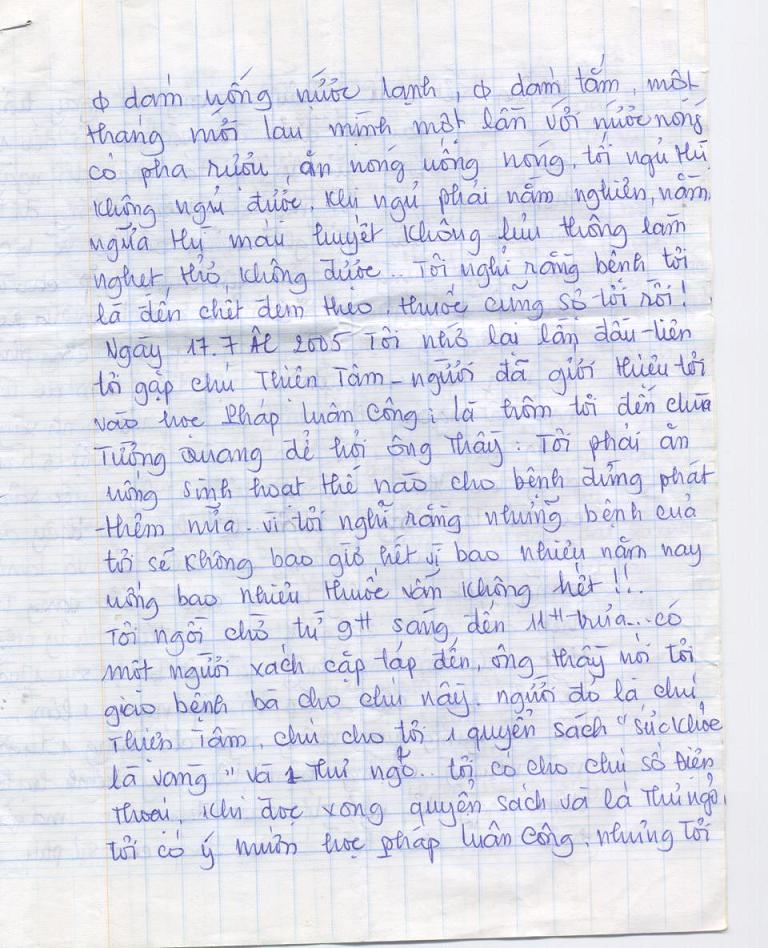 φ dám uống nước lạnh, φ dám tắm, một
tháng mới lau mình một lần với nước nóng
có pha rượu, ăn nóng uống nóng, tối ngủ thì
không ngủ được. Khi ngủ phải nằm nghiên, nằm
ngửa thì máu huyết không lưu thông làm
nghẹt thở không được.. Tôi nghỉ rằng bệnh tôi
là đến chết đem theo, thuốc cũng sổ tối rồi!
Ngày 17.7 ÂL 2005 Tôi nhớ lại lần đầu-tiên
tôi gặp chú Thiên Tâm - người đã giới thiệu tôi
vào học Pháp luân công; là hôm tôi đến chùa
Tường Quang để hỏi ông Thầy: Tôi phải ăn
uống sinh hoạt thế nào cho bệnh đừng phát
thêm nữa. vì tôi nghĩ rằng những bệnh của
tôi sẽ không bao giờ hết vì bao nhiêu năm nay
uống bao nhiêu thuốc vẫn không hết!!.
Tôi ngồi chờ từ 9H sáng đến 11H trưa... có
một người xách cặp táp đến, ông thầy nói tôi
giao bệnh bà cho chú này. người đó là chú
Thiên Tâm, chú cho tôi 1 quyển sách "sức khỏe
là vàng" và 1 Thư ngỏ.. tôi có cho chú số Điện
thoại, khi đọc xong quyển sách và lá Thư ngỏ,
tôi có ý muốn học pháp luân công, nhưng Tôi